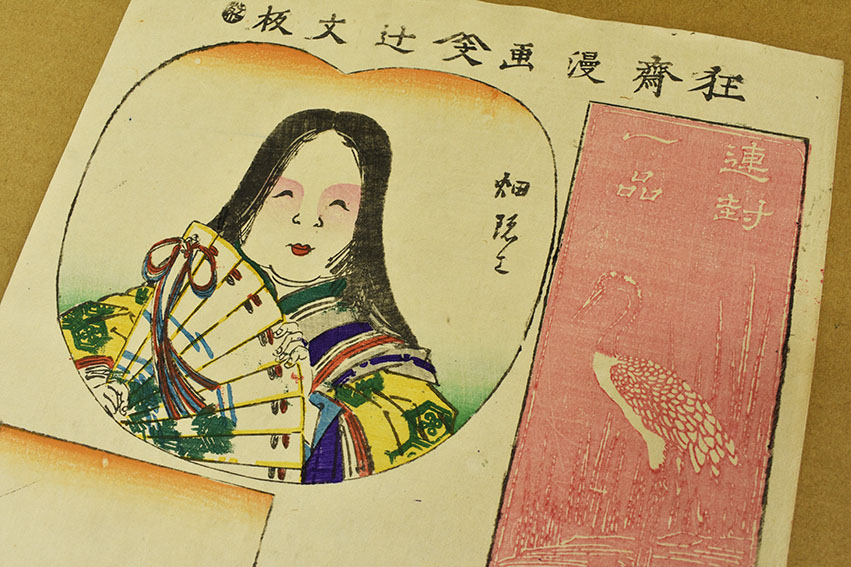 狂齋漫画
辻文板
連封
一品